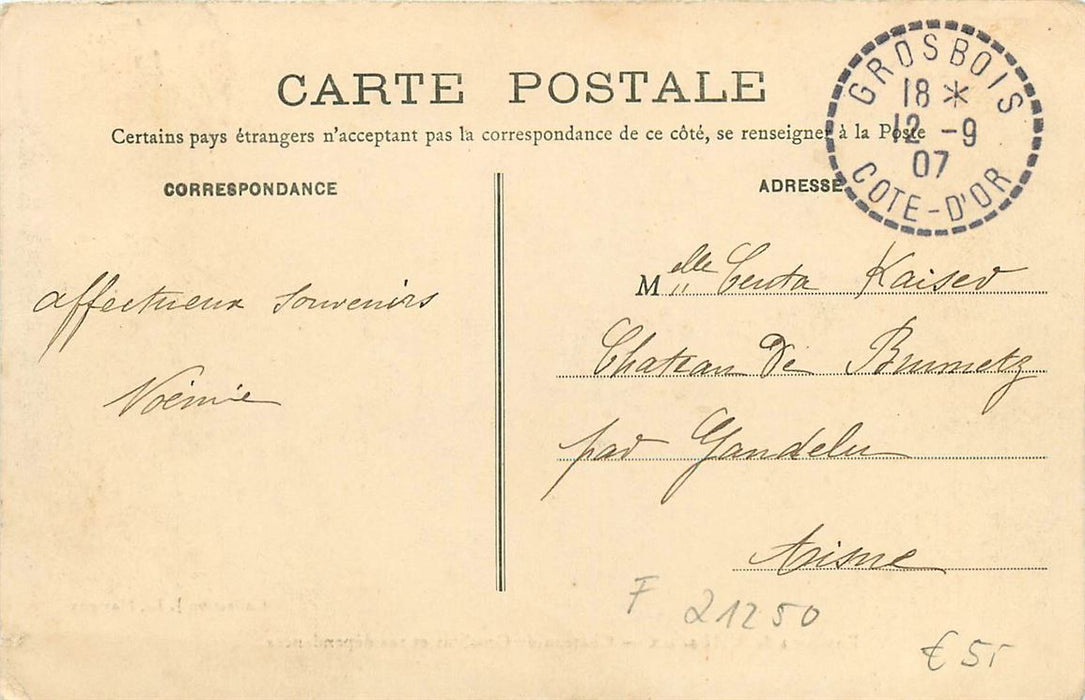 CARTE POSTALE
Certains pays étrangers n'acceptent pas la correspondance de ce côté, se renseigner à la Poste
GROSBOIS
18 *
12 -9
07
COTE-D'OR
CORRESPONDANCE
ADRESSE
affectueux souvenirs
Noémie
Melle Kaiser
Chateau De Brumetz
par Gandelu
Aisne
F 21250
€ 5